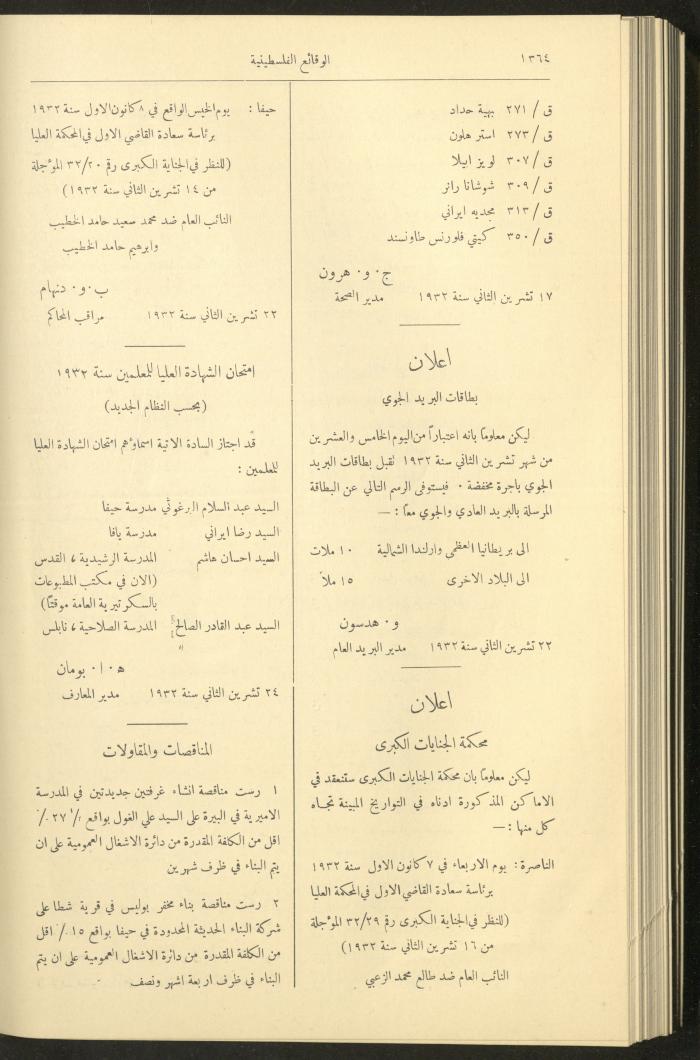 ١٣٦٤
الوقائع الفلسطينية
ق / ٢٧١ بهية حداد
ق / ٢٧٣ استر هلون
ق / ٣٠٧ لويز ابيلا
ق / ٣٠٩ شوشانا رانر
ق / ٣١٣ مجديه ايراني
ق / ٣٥٠ كيتي فلورنس طاونسند
ج٠ و٠ هرون
١٧ تشرين الثاني سنة ١٩٣٢ مدير الصحة
اعلان
بطاقات البريد الجوي
ليكن معلوماً بانه اعتباراً من اليوم الخامس والعشرين
من شهر تشرين الثاني سنة ١٩٣٢ تقبل بطاقات البريد
الجوي باجرة مخفضة ٠ فيستوفى الرسم التالي عن البطاقة
المرسلة بالبريد العادي والجوي معاً : —
الى بريطانيا العظمى وارلندا الشمالية ١٠ ملات
الى البلاد الاخرى ١٥ ملاً
و٠ هدسون
٢٢ تشرين الثاني سنة ١٩٣٢ مدير البريد العام
اعلان
محكمة الجنايات الكبرى
ليكن معلوماً بان محكمة الجنايات الكبرى ستنعقد في
الاماكن المذكورة ادناه في التواريخ المبينة تجاه
كل منها : —
الناصرة : يوم الاربعاء في ٧ كانون الاول سنة ١٩٣٢
برئاسة سعادة القاضي الاول في المحكمة العليا
(للنظر في الجناية الكبرى رقم ٣٢/٢٩ المؤجلة
من ١٦ تشرين الثاني سنة ١٩٣٢)
النائب العام ضد طالع محمد الزعبي
حيفا : يوم الخميس الواقع في ٨ كانون الاول سنة ١٩٣٢
برئاسة سعادة القاضي الاول في المحكمة العليا
(للنظر في الجناية الكبرى رقم ٣٢/٢٠ المؤجلة
من ١٤ تشرين الثاني سنة ١٩٣٢)
النائب العام ضد محمد سعيد حامد الخطيب
وابرهيم حامد الخطيب
ب٠ و٠ دنهام
٢٢ تشرين الثاني سنة ١٩٣٢ مراقب المحاكم
امتحان الشهادة العليا للمعلمين سنة ١٩٣٢
(بحسب النظام الجديد)
قد اجتاز السادة الاتية اسماؤهم امتحان الشهادة العليا
للمعلمين :
السيد عبد السلام البرغوثي مدرسة حيفا
السيد رضا ايراني مدرسة يافا
السيد احسان هاشم المدرسة الرشيدية ، القدس
(الان في مكتب المطبوعات
بالسكرتيرية العامة موقتاً)
السيد عبد القادر الصالح المدرسة الصلاحية ، نابلس
ه٠ ا٠ بومان
٢٤ تشرين الثاني سنة ١٩٣٢ مدير المعارف
المناقصات والمقاولات
١ رست مناقصة انشاء غرفتين جديدتين في المدرسة
الاميرية في البيرة على السيد علي الغول بواقع ٢٧ ./˙
اقل من الكلفة المقدرة من دائرة الاشغال العمومية على ان
يتم البناء في ظرف شهرين
٢ رست مناقصة بناء مخفر بوليس في قرية شطا على
شركة البناء الحديثة المحدودة في حيفا بواقع ١٥ ./˙ اقل
من الكلفة المقدرة من دائرة الاشغال العمومية على ان يتم
البناء في ظرف اربعة اشهر ونصف